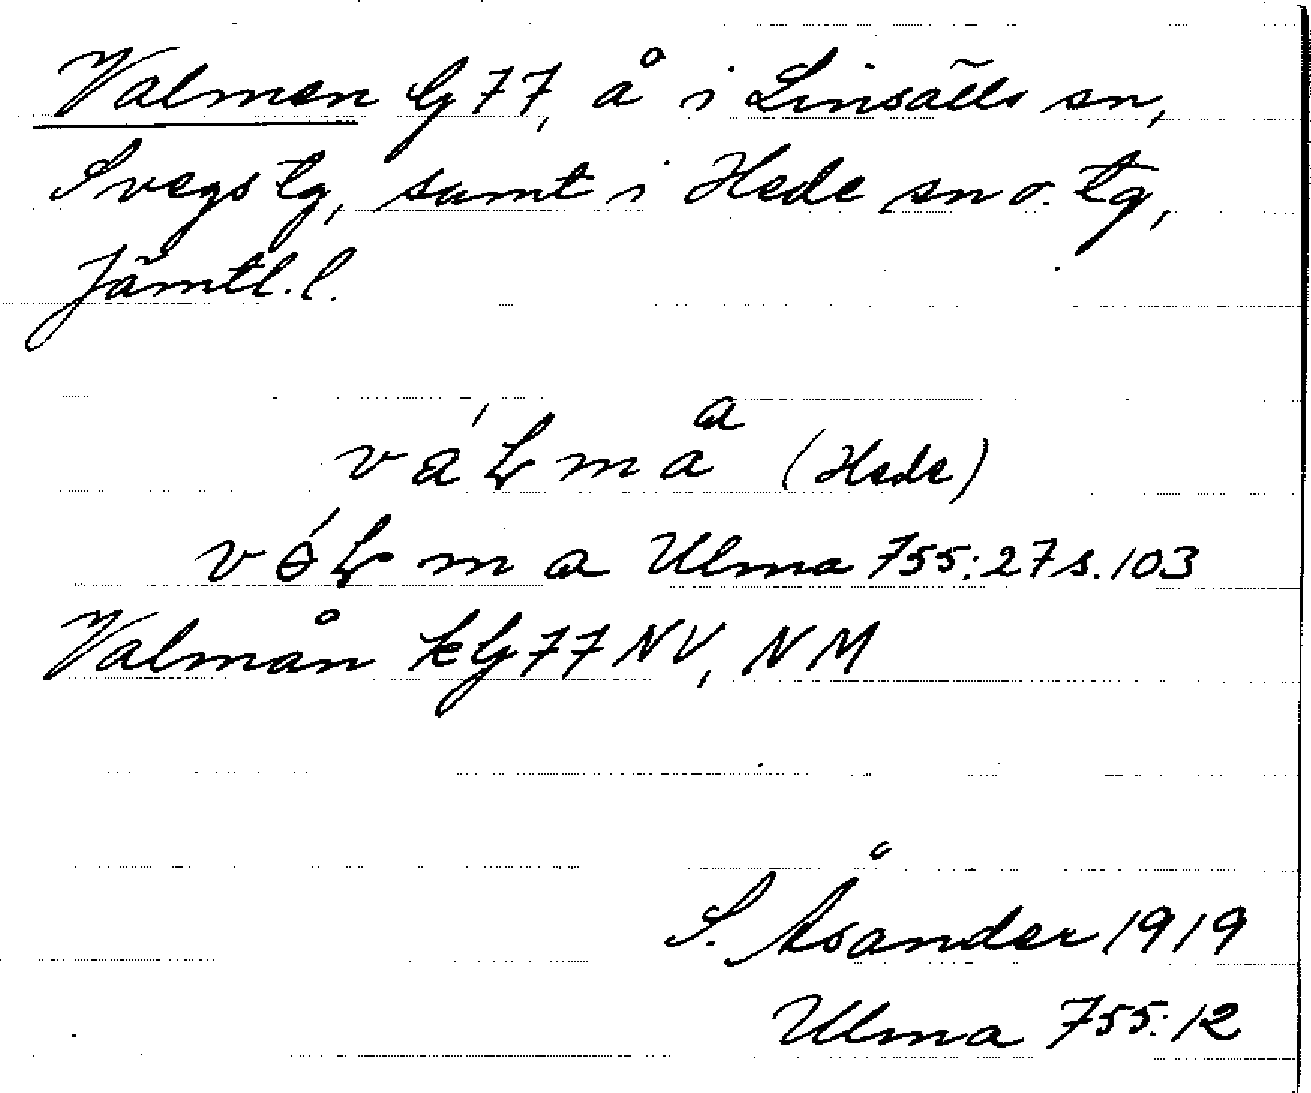 Valmen G 77, å i Linsälls sn,
Svegs tg, samt i Hede sn o. tg,
Jämtl. l.
váⱡmaͣ (Hede)
vɵ́ⱡma Ulma 755:27 s. 103
Valmån kG 77 NV, NM
S. Åsander 1919
Ulma 755:12